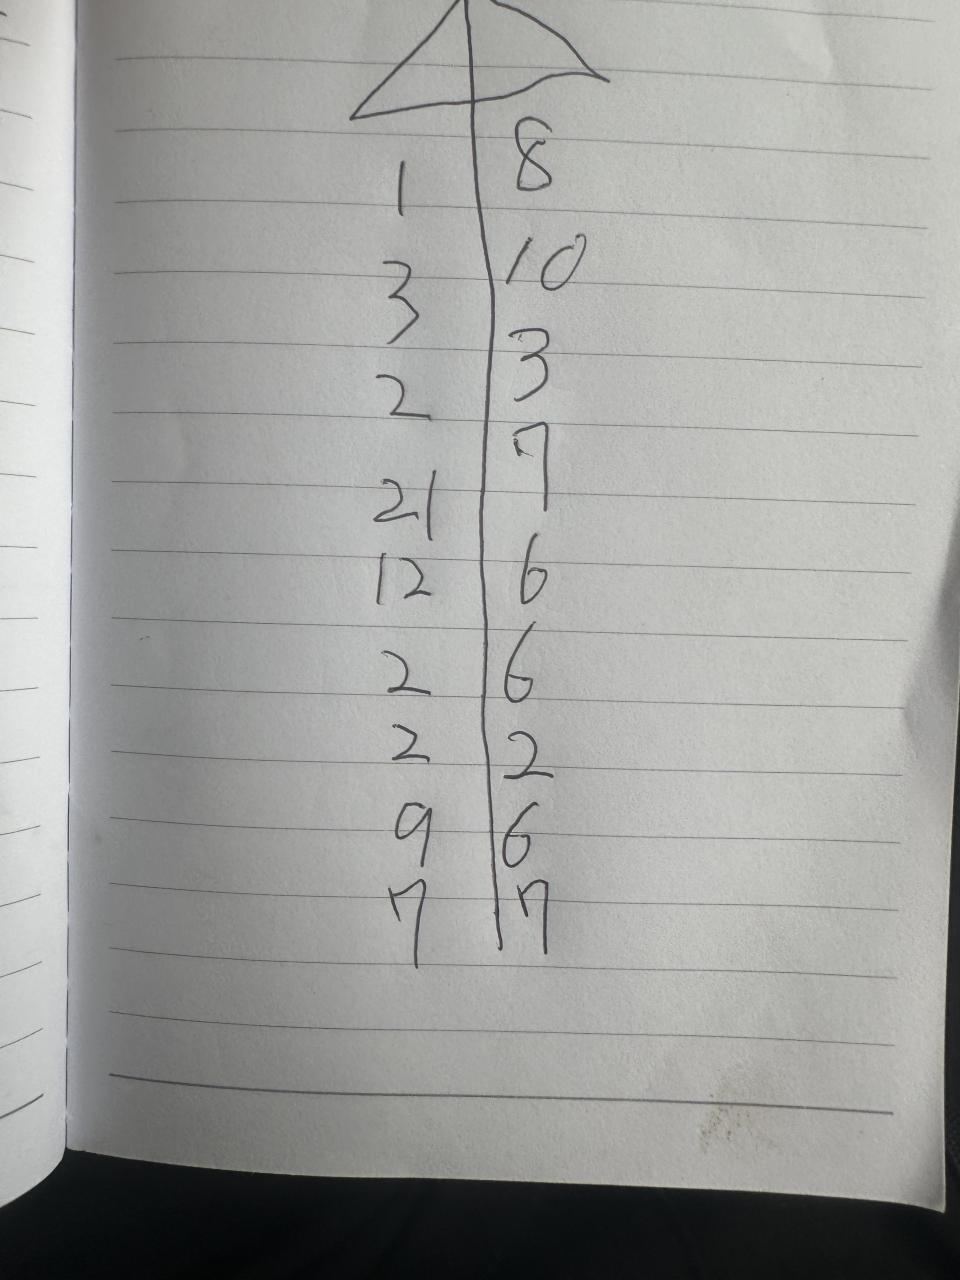 1 8
3 10
2 3
21 7
12 6
2 6
2 2
9 6
7 7